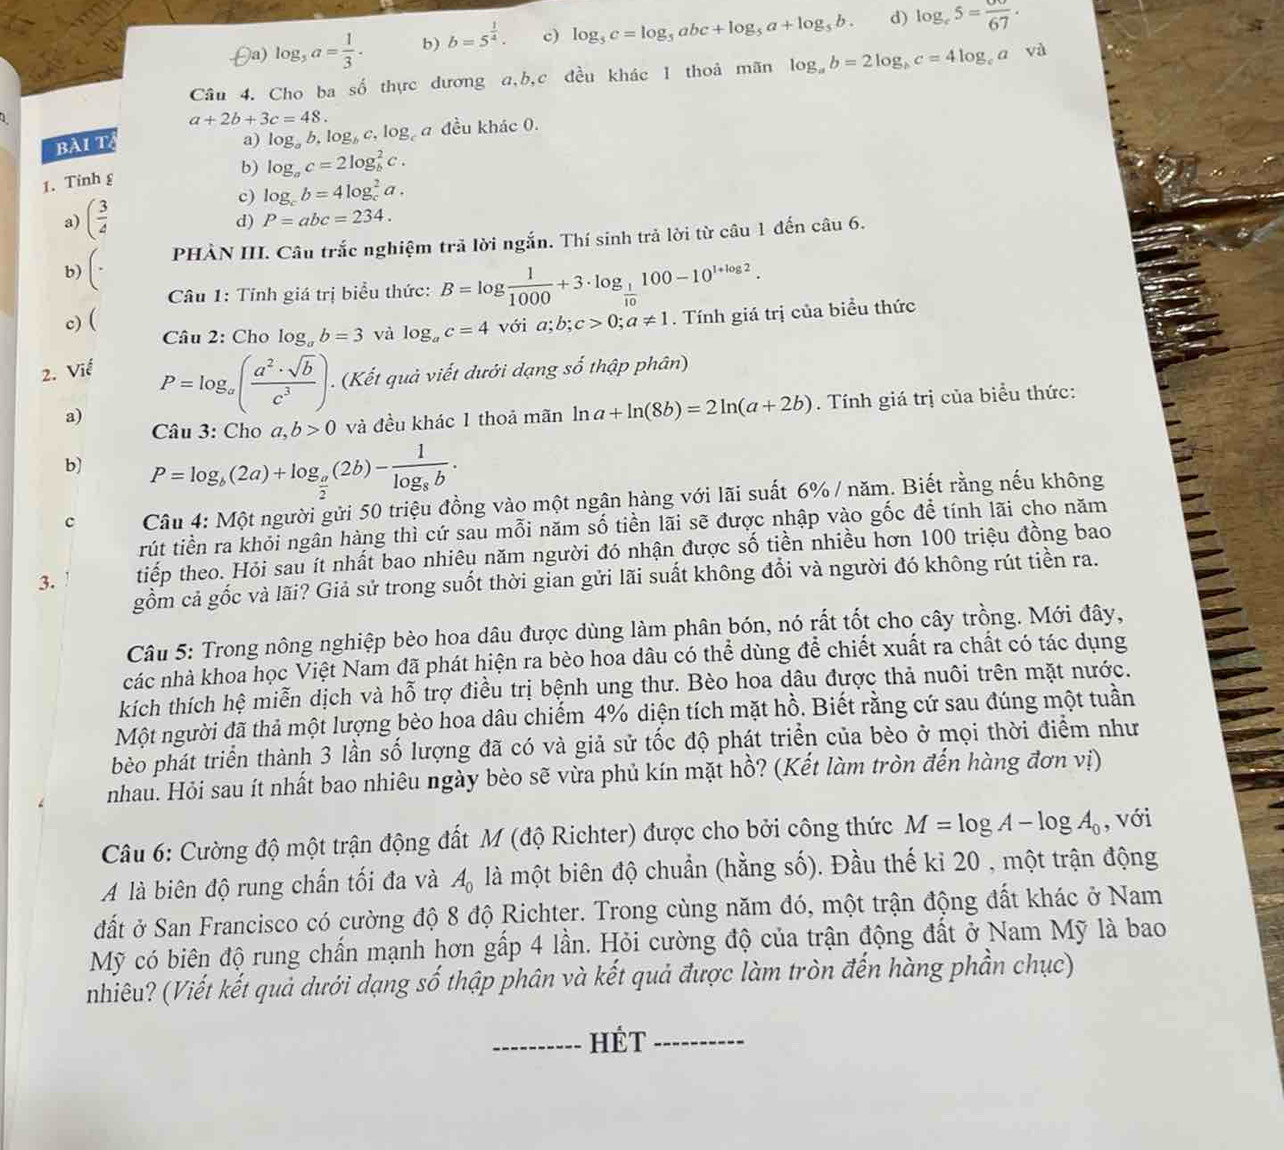 a) log₅ a = 1/3. b) b = 5^(1/4). c) log₅ c = log₅ abc + log₅ a + log₅ b. d) log_c 5 = /67.
Câu 4. Cho ba số thực dương a,b,c đều khác 1 thoả mãn log_a b = 2 log_b c = 4 log_c a và
a + 2b + 3c = 48.
a) log_a b, log_b c, log_c a đều khác 0.
b) log_a c = 2 log_b² c.
c) log_c b = 4 log_c² a.
d) P = abc = 234.
PHẦN III. Câu trắc nghiệm trả lời ngắn. Thí sinh trả lời từ câu 1 đến câu 6.
Câu 1: Tính giá trị biểu thức: B = log 1/1000 + 3·log_(1/10) 100 − 10^(1+log 2).
Câu 2: Cho log_a b = 3 và log_a c = 4 với a;b;c > 0; a ≠ 1. Tính giá trị của biểu thức
P = log_a (a²·√b / c³). (Kết quả viết dưới dạng số thập phân)
Câu 3: Cho a,b > 0 và đều khác 1 thoả mãn ln a + ln(8b) = 2 ln(a + 2b). Tính giá trị của biểu thức:
P = log_b (2a) + log_(a/2) (2b) − 1/log₈ b.
Câu 4: Một người gửi 50 triệu đồng vào một ngân hàng với lãi suất 6% / năm. Biết rằng nếu không
rút tiền ra khỏi ngân hàng thì cứ sau mỗi năm số tiền lãi sẽ được nhập vào gốc để tính lãi cho năm
tiếp theo. Hỏi sau ít nhất bao nhiêu năm người đó nhận được số tiền nhiều hơn 100 triệu đồng bao
gồm cả gốc và lãi? Giả sử trong suốt thời gian gửi lãi suất không đổi và người đó không rút tiền ra.
Câu 5: Trong nông nghiệp bèo hoa dâu được dùng làm phân bón, nó rất tốt cho cây trồng. Mới đây,
các nhà khoa học Việt Nam đã phát hiện ra bèo hoa dâu có thể dùng để chiết xuất ra chất có tác dụng
kích thích hệ miễn dịch và hỗ trợ điều trị bệnh ung thư. Bèo hoa dâu được thả nuôi trên mặt nước.
Một người đã thả một lượng bèo hoa dâu chiếm 4% diện tích mặt hồ. Biết rằng cứ sau đúng một tuần
bèo phát triển thành 3 lần số lượng đã có và giả sử tốc độ phát triển của bèo ở mọi thời điểm như
nhau. Hỏi sau ít nhất bao nhiêu ngày bèo sẽ vừa phủ kín mặt hồ? (Kết làm tròn đến hàng đơn vị)
Câu 6: Cường độ một trận động đất M (độ Richter) được cho bởi công thức M = log A − log A₀, với
A là biên độ rung chấn tối đa và A₀ là một biên độ chuẩn (hằng số). Đầu thế kỉ 20 , một trận động
đất ở San Francisco có cường độ 8 độ Richter. Trong cùng năm đó, một trận động đất khác ở Nam
Mỹ có biên độ rung chấn mạnh hơn gấp 4 lần. Hỏi cường độ của trận động đất ở Nam Mỹ là bao
nhiêu? (Viết kết quả dưới dạng số thập phân và kết quả được làm tròn đến hàng phần chục)
---------- HẾT ----------
BÀI
1. Tính
a) (3/4
b) (
c) (
2.
a)
b)
c
3.